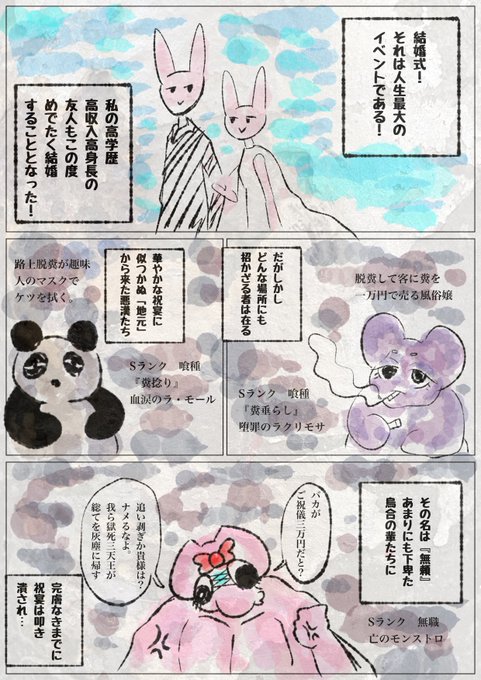 結婚式！
それは人生最大の
イベントである！
私の高学歴
高収入高身長の
友人もこの度
めでたく結婚
することとなった！
だがしかし
どんな場所にも
招かざる者は在る
脱糞して客に糞を
一万円で売る風俗嬢
Sランク　喰種
『糞垂らし』
堕罪のラクリモサ
華やかな祝宴に
似つかぬ「地元」
から来た悪漢たち
路上脱糞が趣味
人のマスクで
ケツを拭く。
Sランク　喰種
『糞捻り』
血涙のラ・モール
その名は『無頼』
あまりにも下卑た
烏合の輩たちに
Sランク　無職
亡のモンストロ
バカが
ご祝儀三万円だと？
追い剥ぎか貴様は？
ナメるなよ。
我ら獄死三天王が
総てを灰塵に帰す
完膚なきまでに
祝宴は叩き
潰され…